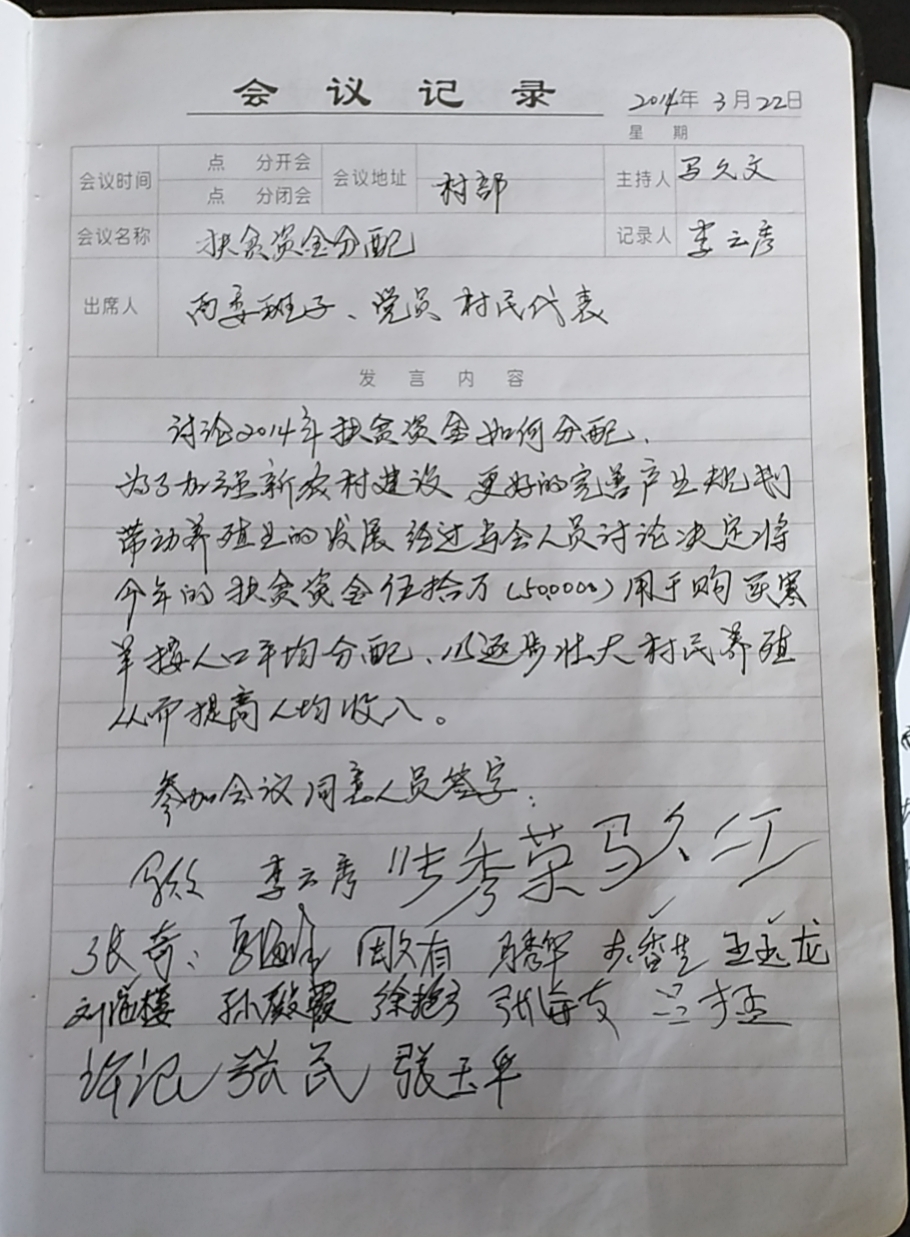 会议记录
2014年3月22日
星期
会议时间 点 分开会 会议地址 村部 主持人 马久文
点 分闭会
会议名称 扶贫资金分配 记录人 李云彦
出席人 两委班子、党员 村民代表
发言内容
讨论2014年扶贫资金如何分配.
为了加强新农村建设 更好的完善产业规划
带动养殖业的发展 经过与会人员讨论决定将
今年的扶贫资金伍拾万(500000)用于购 寒
羊按人口平均分配、以逐步壮大村民养殖
从而提高人均收入。
参加会议同意人员签字:
李云彦 张秀荣 马久江
张奇 周久有 马秀军 王玉龙
孙殿霞 徐艳 张海友
许记 张民 张玉华